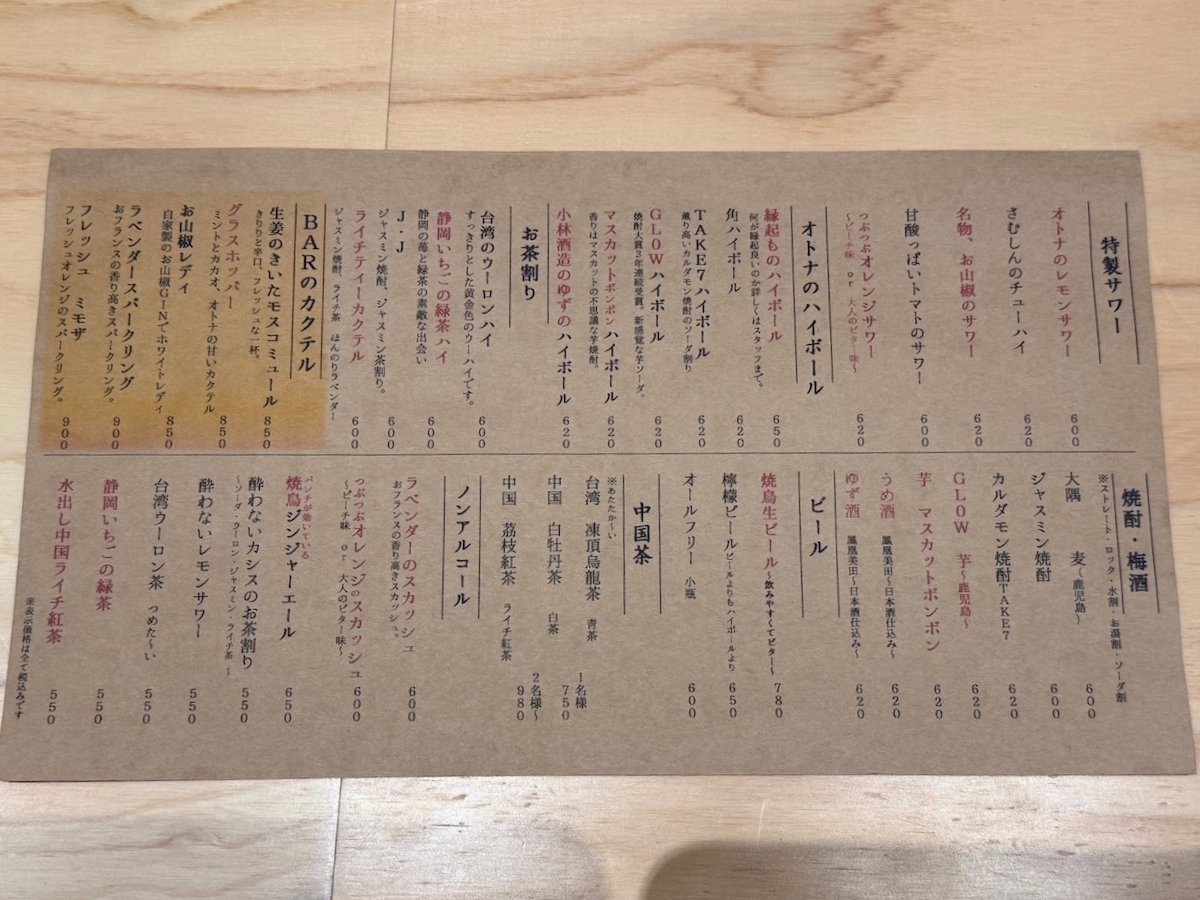 特製サワー
オトナのレモンサワー
600
さむしんのチューハイ
620
名物、お山椒のサワー
620
甘酸っぱいトマトのサワー
600
つぶつぶオレンジサワー
〜ピーチ味 or 大人のビター味〜
620
オトナのハイボール
縁起ものハイボール
何が縁起良いのか詳しくはスタッフまで。
650
角ハイボール
620
TAKE7ハイボール
薫り高いカルダモン焼酎のソーダ割り
620
GLOWハイボール
焼酎大賞3年連続受賞、新感覚な芋ソーダ。
620
マスカットボンボンハイボール
香りはマスカットの不思議な芋焼酎。
620
小林酒造のゆずのハイボール
620
お茶割り
台湾のウーロンハイ
すっきりとした黄金色のウーハイです。
600
静岡いちごの緑茶ハイ
静岡の苺と緑茶の素敵な出会い
600
J・J
ジャスミン焼酎、ジャスミン茶割り。
600
ライチティーカクテル
ジャスミン焼酎、ライチ茶 ほんのりラベンダー
600
BARのカクテル
生姜のきいたモスコミュール
きりりと辛口、フレッシュな一杯。
850
グラスホッパー
ミントとカカオ、オトナの甘いカクテル
850
お山椒レディ
自家製のお山椒GINでホワイトレディ
850
ラベンダースパークリング
おフランスの香り高きスパークリング。
900
フレッシュ ミモザ
フレッシュオレンジのスパークリング。
900
焼酎・梅酒
※ストレート・ロック・水割・お湯割・ソーダ割
大隅 麦〜鹿児島〜
600
ジャスミン焼酎
600
カルダモン焼酎TAKE7
620
GLOW 芋〜鹿児島〜
620
芋 マスカットボンボン
620
うめ酒 鳳凰美田〜日本酒仕込み〜
620
ゆず酒 鳳凰美田〜日本酒仕込み〜
620
ビール
焼鳥生ビール〜飲みやすくてビター〜
780
檸檬ビールビールよりもハイボールより
650
オールフリー 小瓶
600
中国茶
※あたたか〜い
台湾 凍頂烏龍茶 青茶
中国 白牡丹茶 白茶
中国 茘枝紅茶 ライチ紅茶
1名様
750
2名様〜
980
ノンアルコール
ラベンダーのスカッシュ
おフランスの香り高きスカッシュ。
600
つぶつぶオレンジのスカッシュ
〜ピーチ味 or 大人のビター味〜
600
パンチが効いている
焼鳥ジンジャーエール
650
酔わないカシスのお茶割り
〜ソーダ・ウーロン・ジャスミン・ライチ茶〜
550
酔わないレモンサワー
550
台湾ウーロン茶 つめた〜い
550
静岡いちごの緑茶
550
水出し中国ライチ紅茶
550
※表示価格は全て税込みです